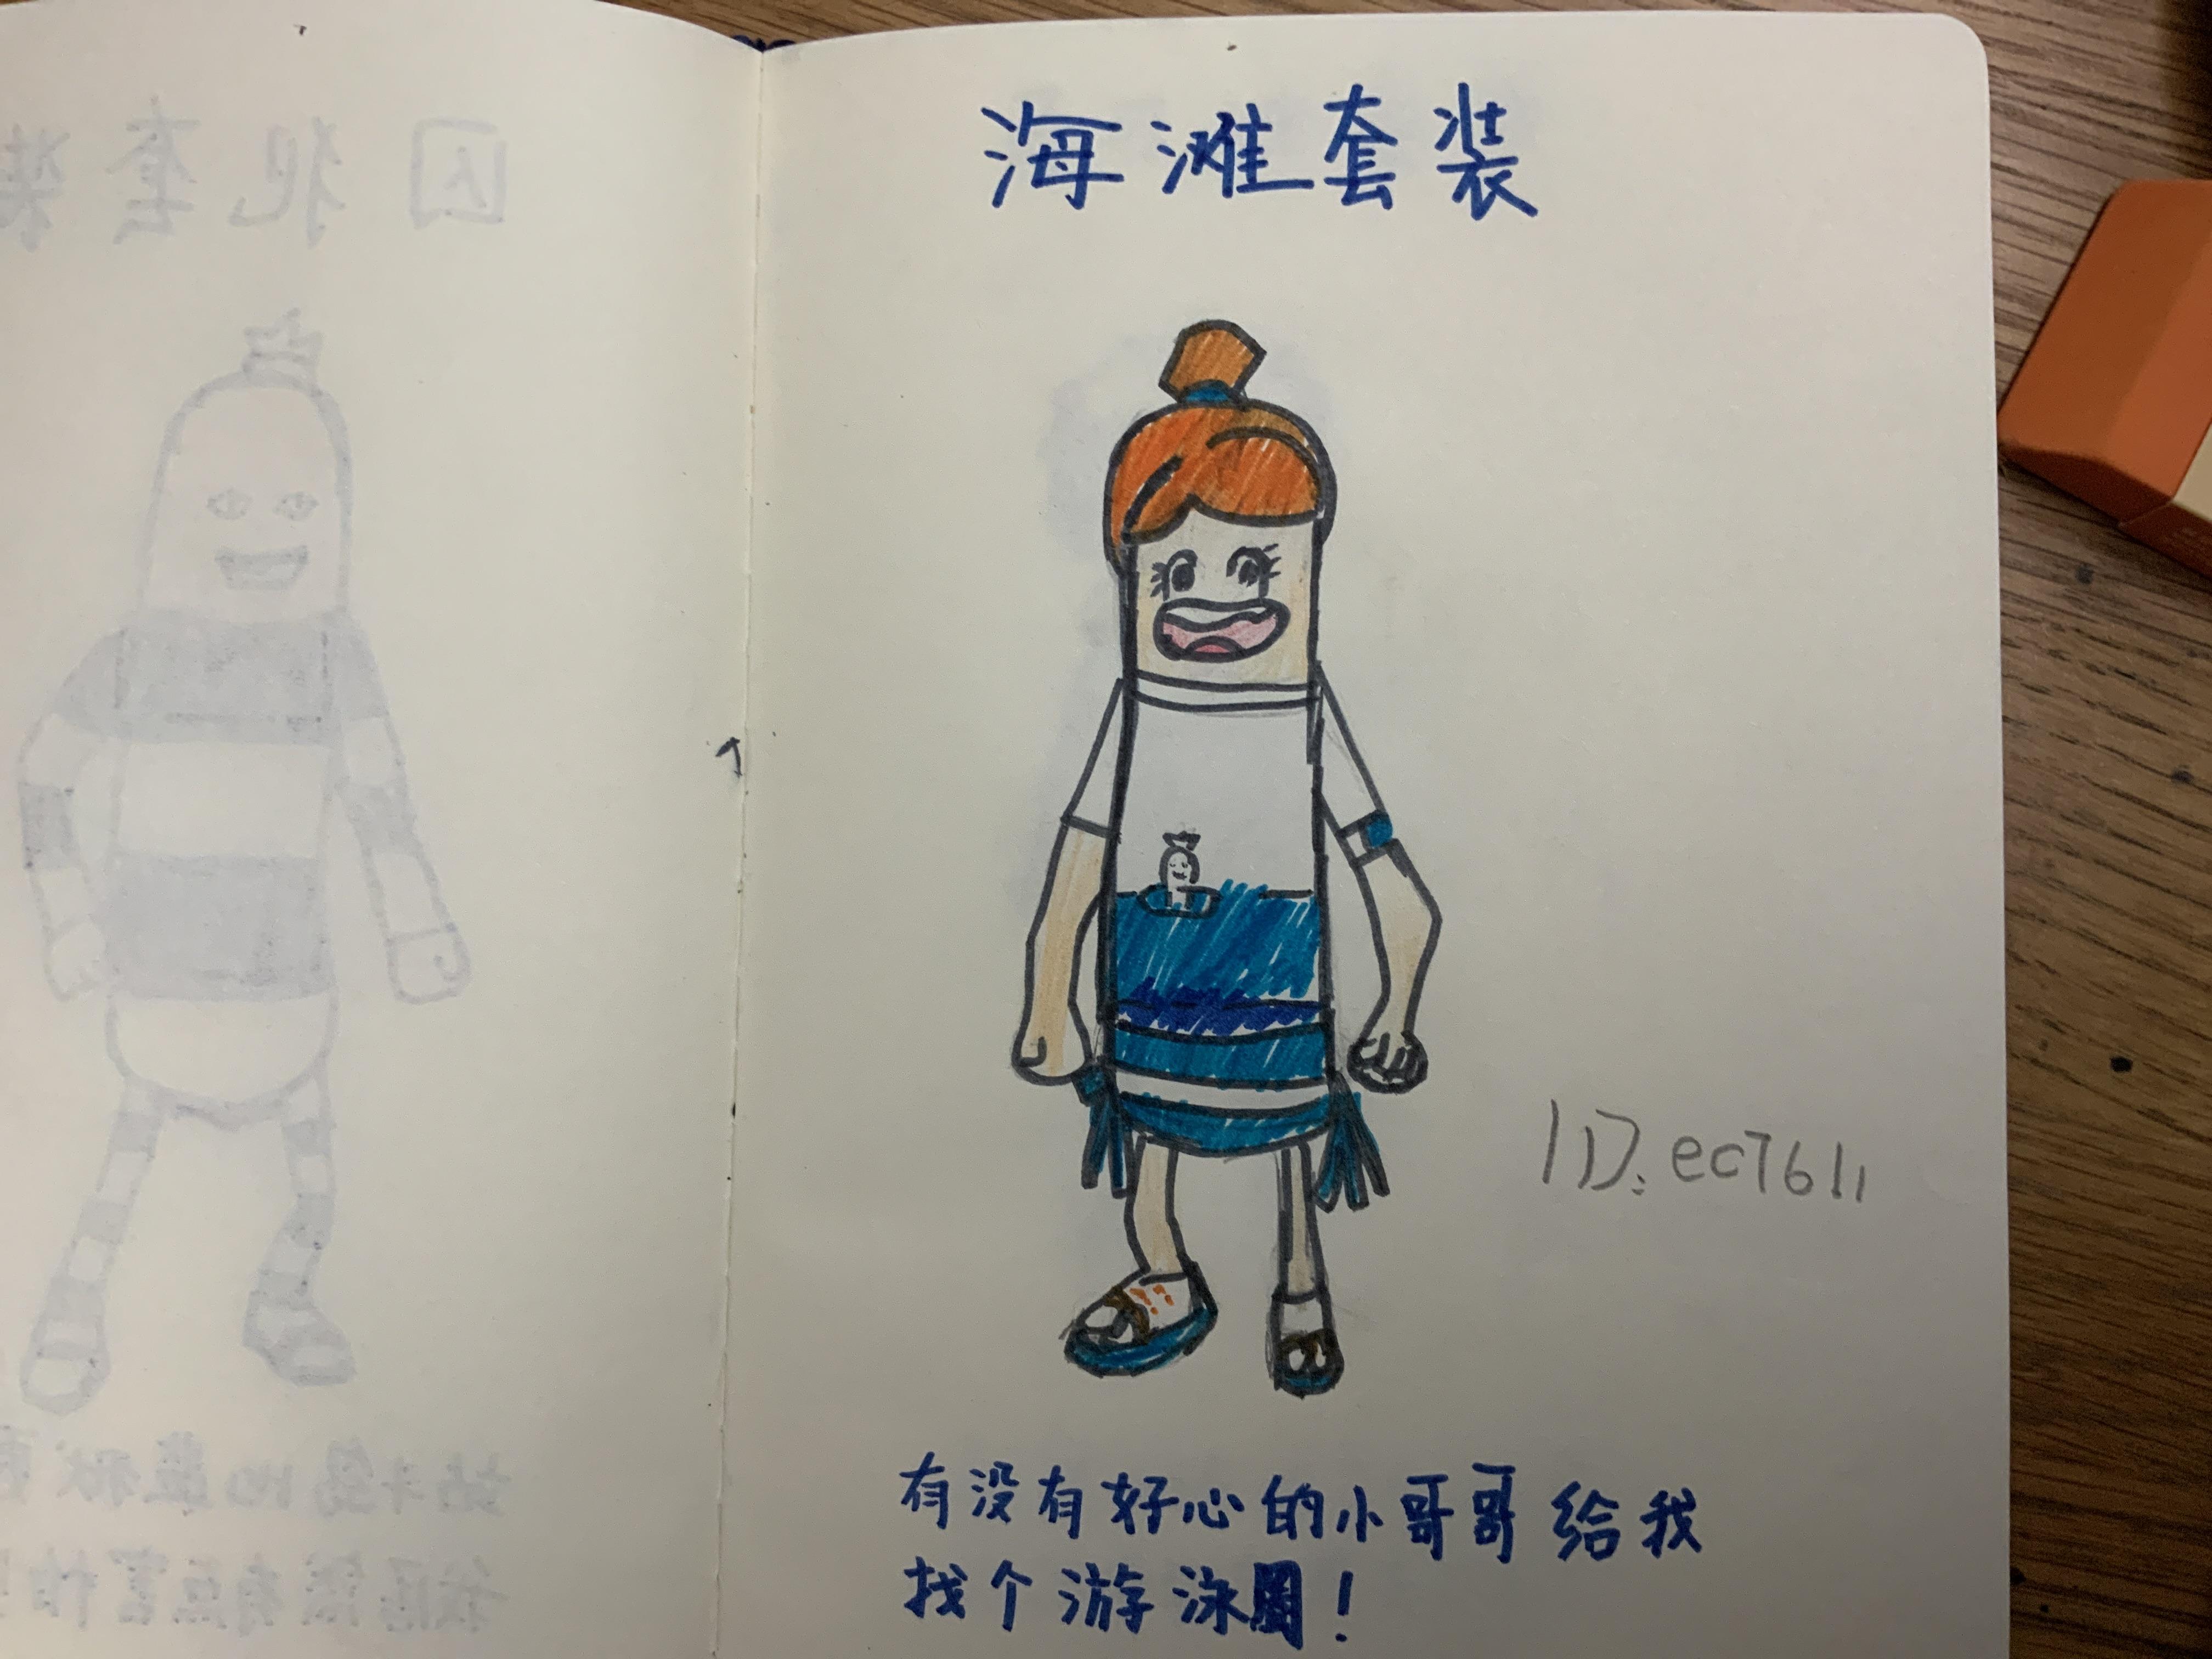 囚犯套装
海滩套装
ID: ec7611
有没有好心的小哥哥给我
找个游泳圈！